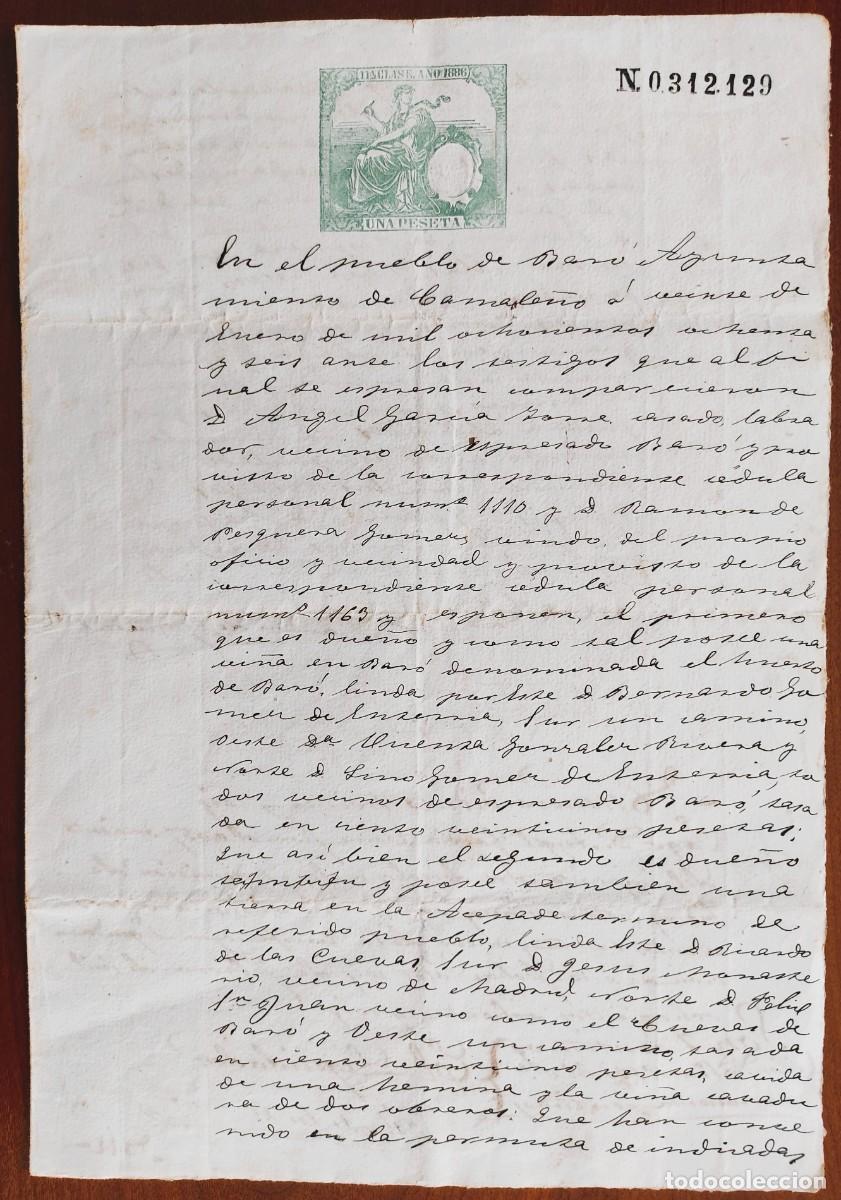 11ª CLASE. AÑO 1886
N. 0.312.129
UNA PESETA
En el pueblo de Baró Ayunta
miento de Camaleño á veinte de
Enero de mil ochocientos ochenta
y seis ante los testigos que al fi
nal se espresan comparecieron
D Angel Garcia Torre, casado, labra
dor, vecino de espresado Baró y pro
visto de la correspondiente cédula
personal numº 1110 y D. Ramon de
Pesquera Gomez, viudo, del propio
oficio y vecindad y provisto de la
correspondiente cédula personal
numº 1163 y esponen, el primero
que es dueño y como tal posee una
viña en Baró denominada el huerto
de Baró, linda por Este D Bernardo Go
mez de Enterria, Sur un camino,
Oeste Dª Vicenta Gonzalez Rivera y
Norte D Lino Gomez de Enterria, to
dos vecinos de espresado Baró, tasa
da en ciento veinticinco pesetas;
Que así bien el segundo es dueño
y posee tambien una
tierra en la termino de
referido pueblo, linda Este D. Ricardo
de las Cuevas, Sur D Jesus Monaste
rio, vecino de Madrid, Norte D. Feliz
Sn Juan vecino como el Cuevas de
Baró y Oeste un camino, tasada
en ciento veinticinco pesetas, cavida
de una hemina y la viña cavadu
ra de dos obreros: Que han conve
nido en la permuta de indicadas
todocoleccion